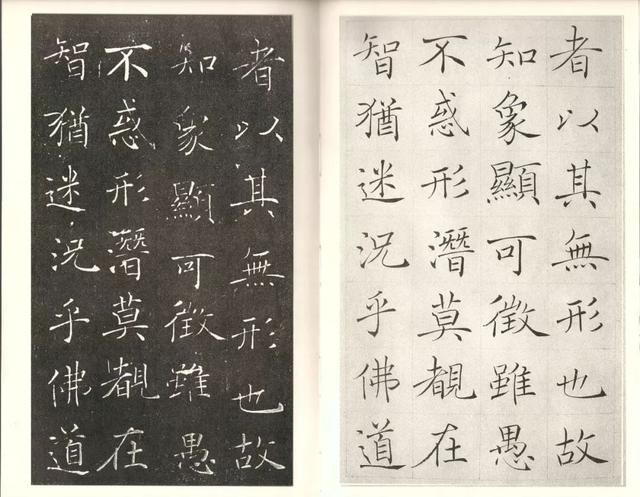 者以其無形也故
知象顯可徵雖愚
不惑形潛莫覩在
智猶迷況乎佛道
者以其無形也故
知象顯可徵雖愚
不惑形潛莫覩在
智猶迷況乎佛道